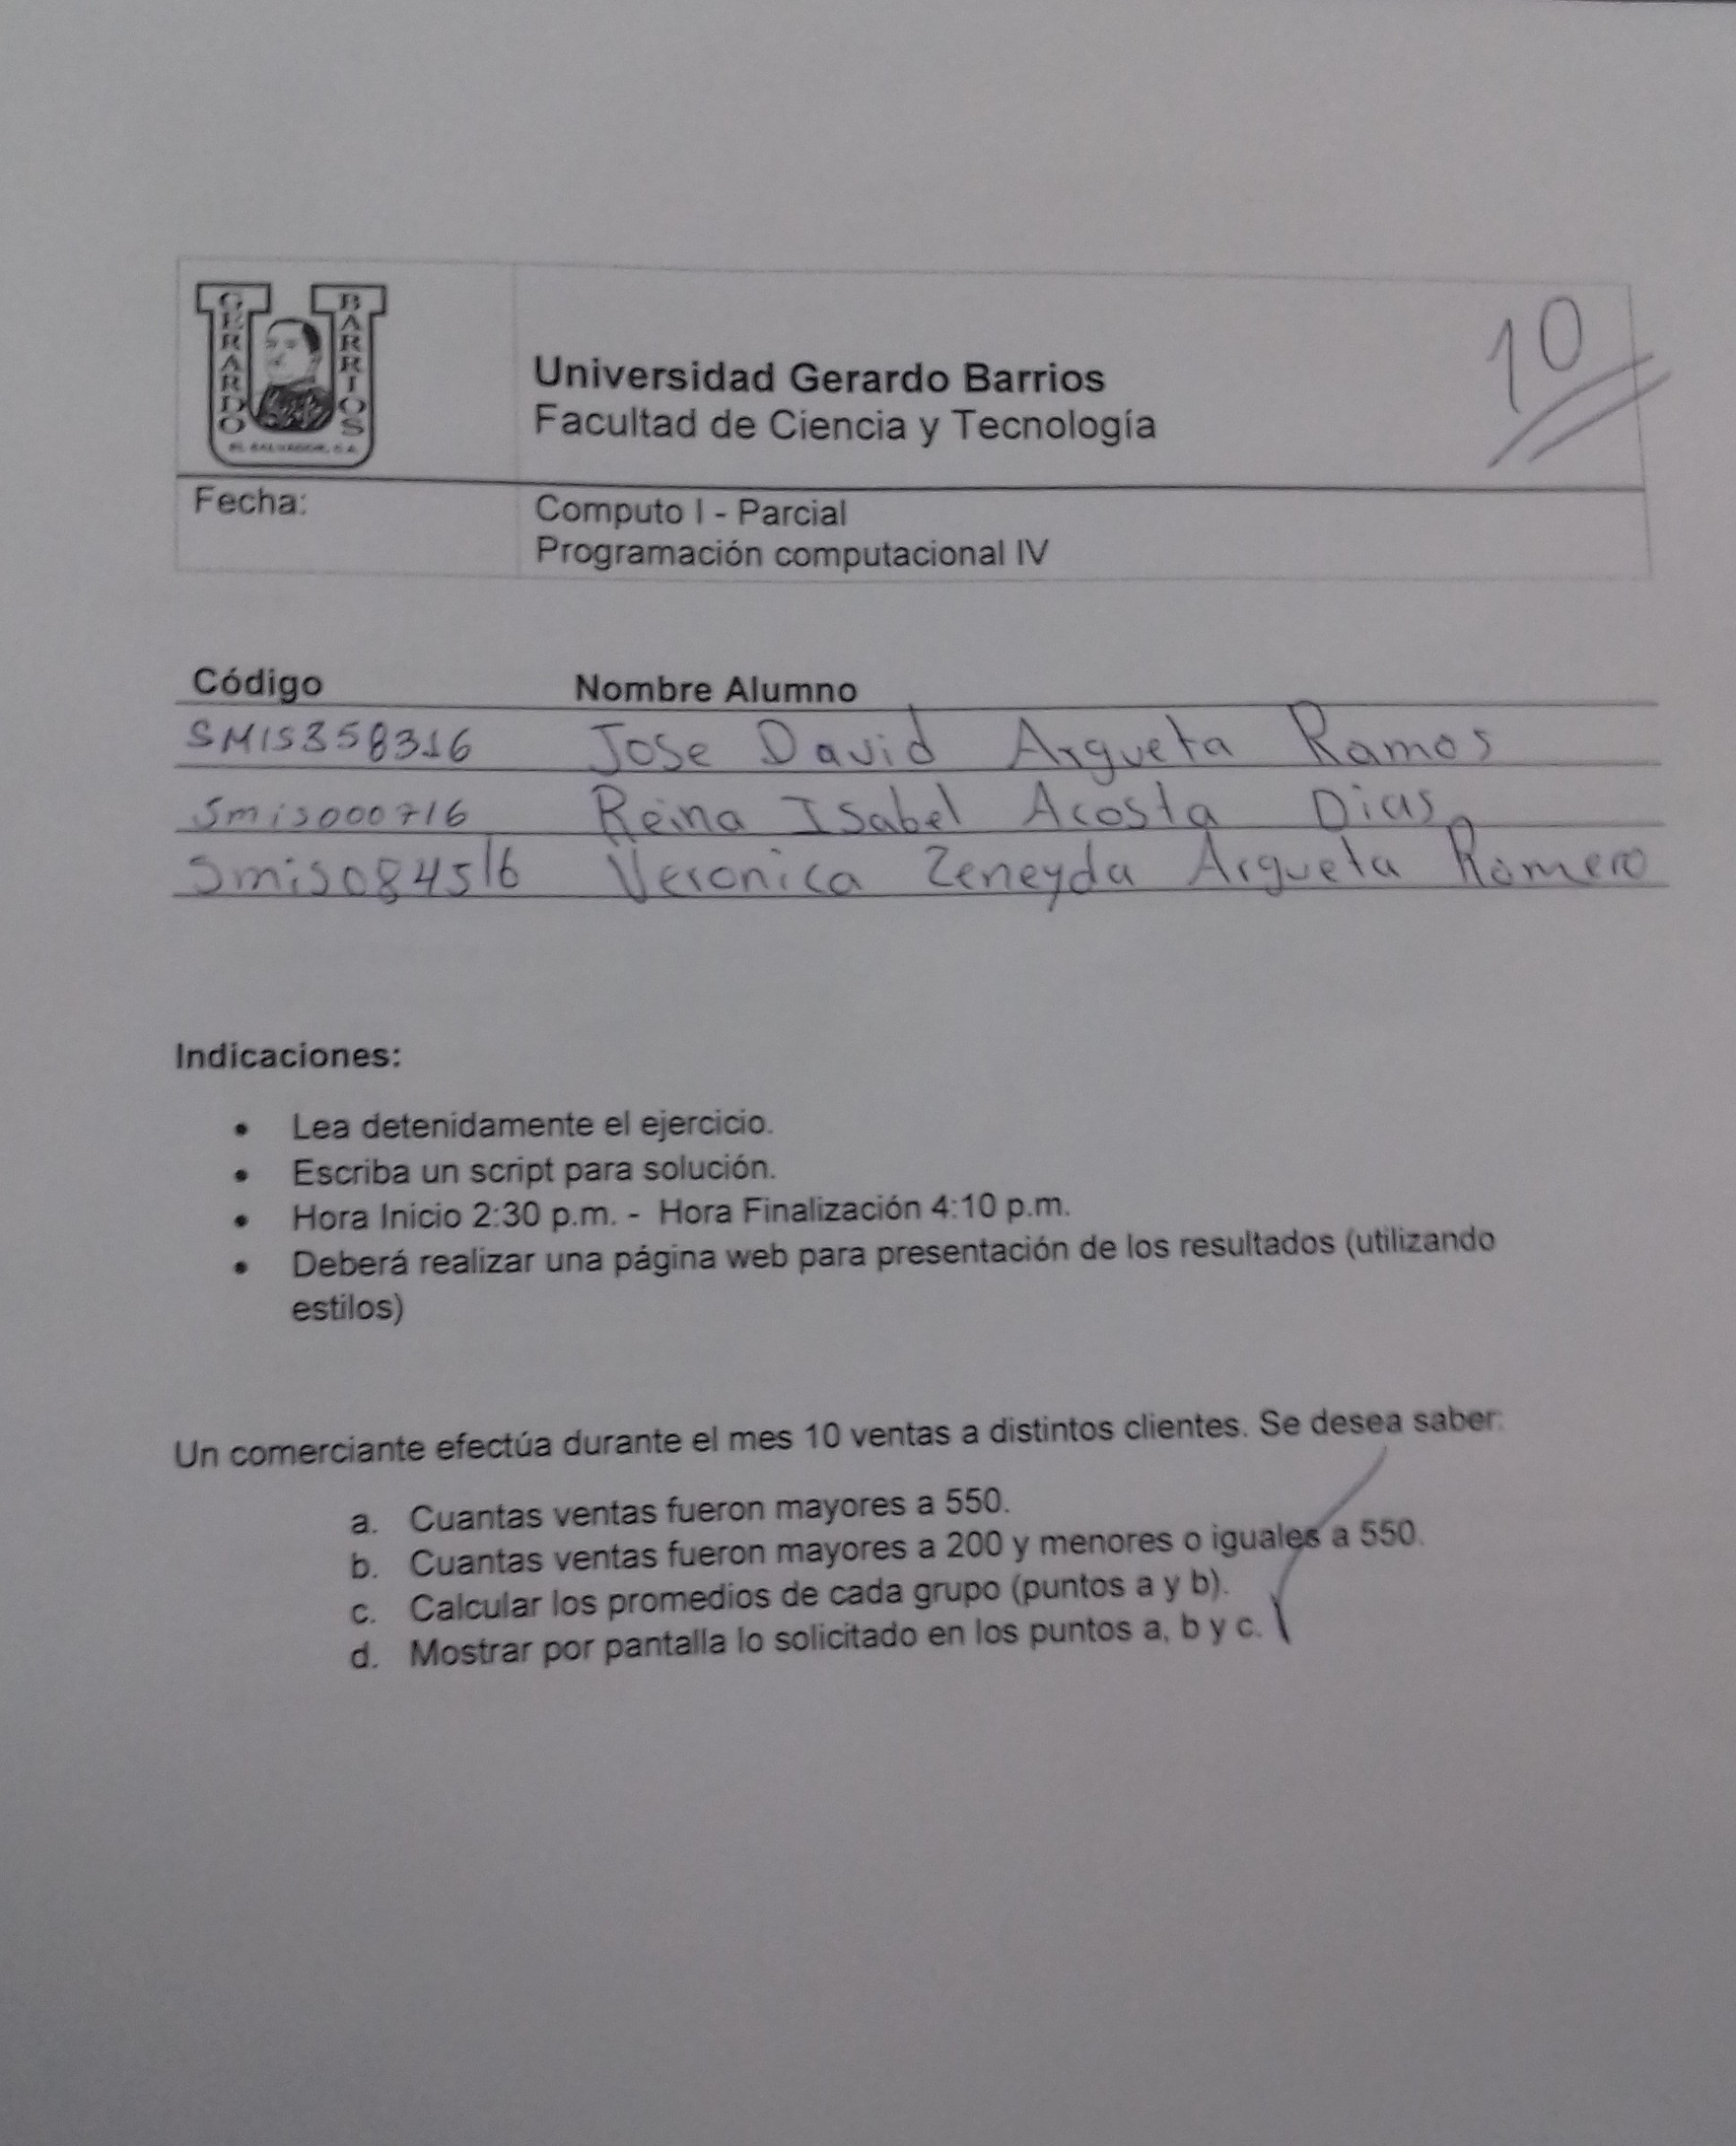 GERARDO BARRIOS
EL SALVADOR, C.A.
10
Universidad Gerardo Barrios
Facultad de Ciencia y Tecnología
Fecha:
Computo I - Parcial
Programación computacional IV
Código Nombre Alumno
SMIS358316 Jose David Argueta Ramos
Smis000716 Reina Isabel Acosta Dias
Smis084516 Veronica Zeneyda Argueta Romero
Indicaciones:
• Lea detenidamente el ejercicio.
• Escriba un script para solución.
• Hora Inicio 2:30 p.m. - Hora Finalización 4:10 p.m.
• Deberá realizar una página web para presentación de los resultados (utilizando
estilos)
Un comerciante efectúa durante el mes 10 ventas a distintos clientes. Se desea saber:
a. Cuantas ventas fueron mayores a 550.
b. Cuantas ventas fueron mayores a 200 y menores o iguales a 550.
c. Calcular los promedios de cada grupo (puntos a y b).
d. Mostrar por pantalla lo solicitado en los puntos a, b y c.